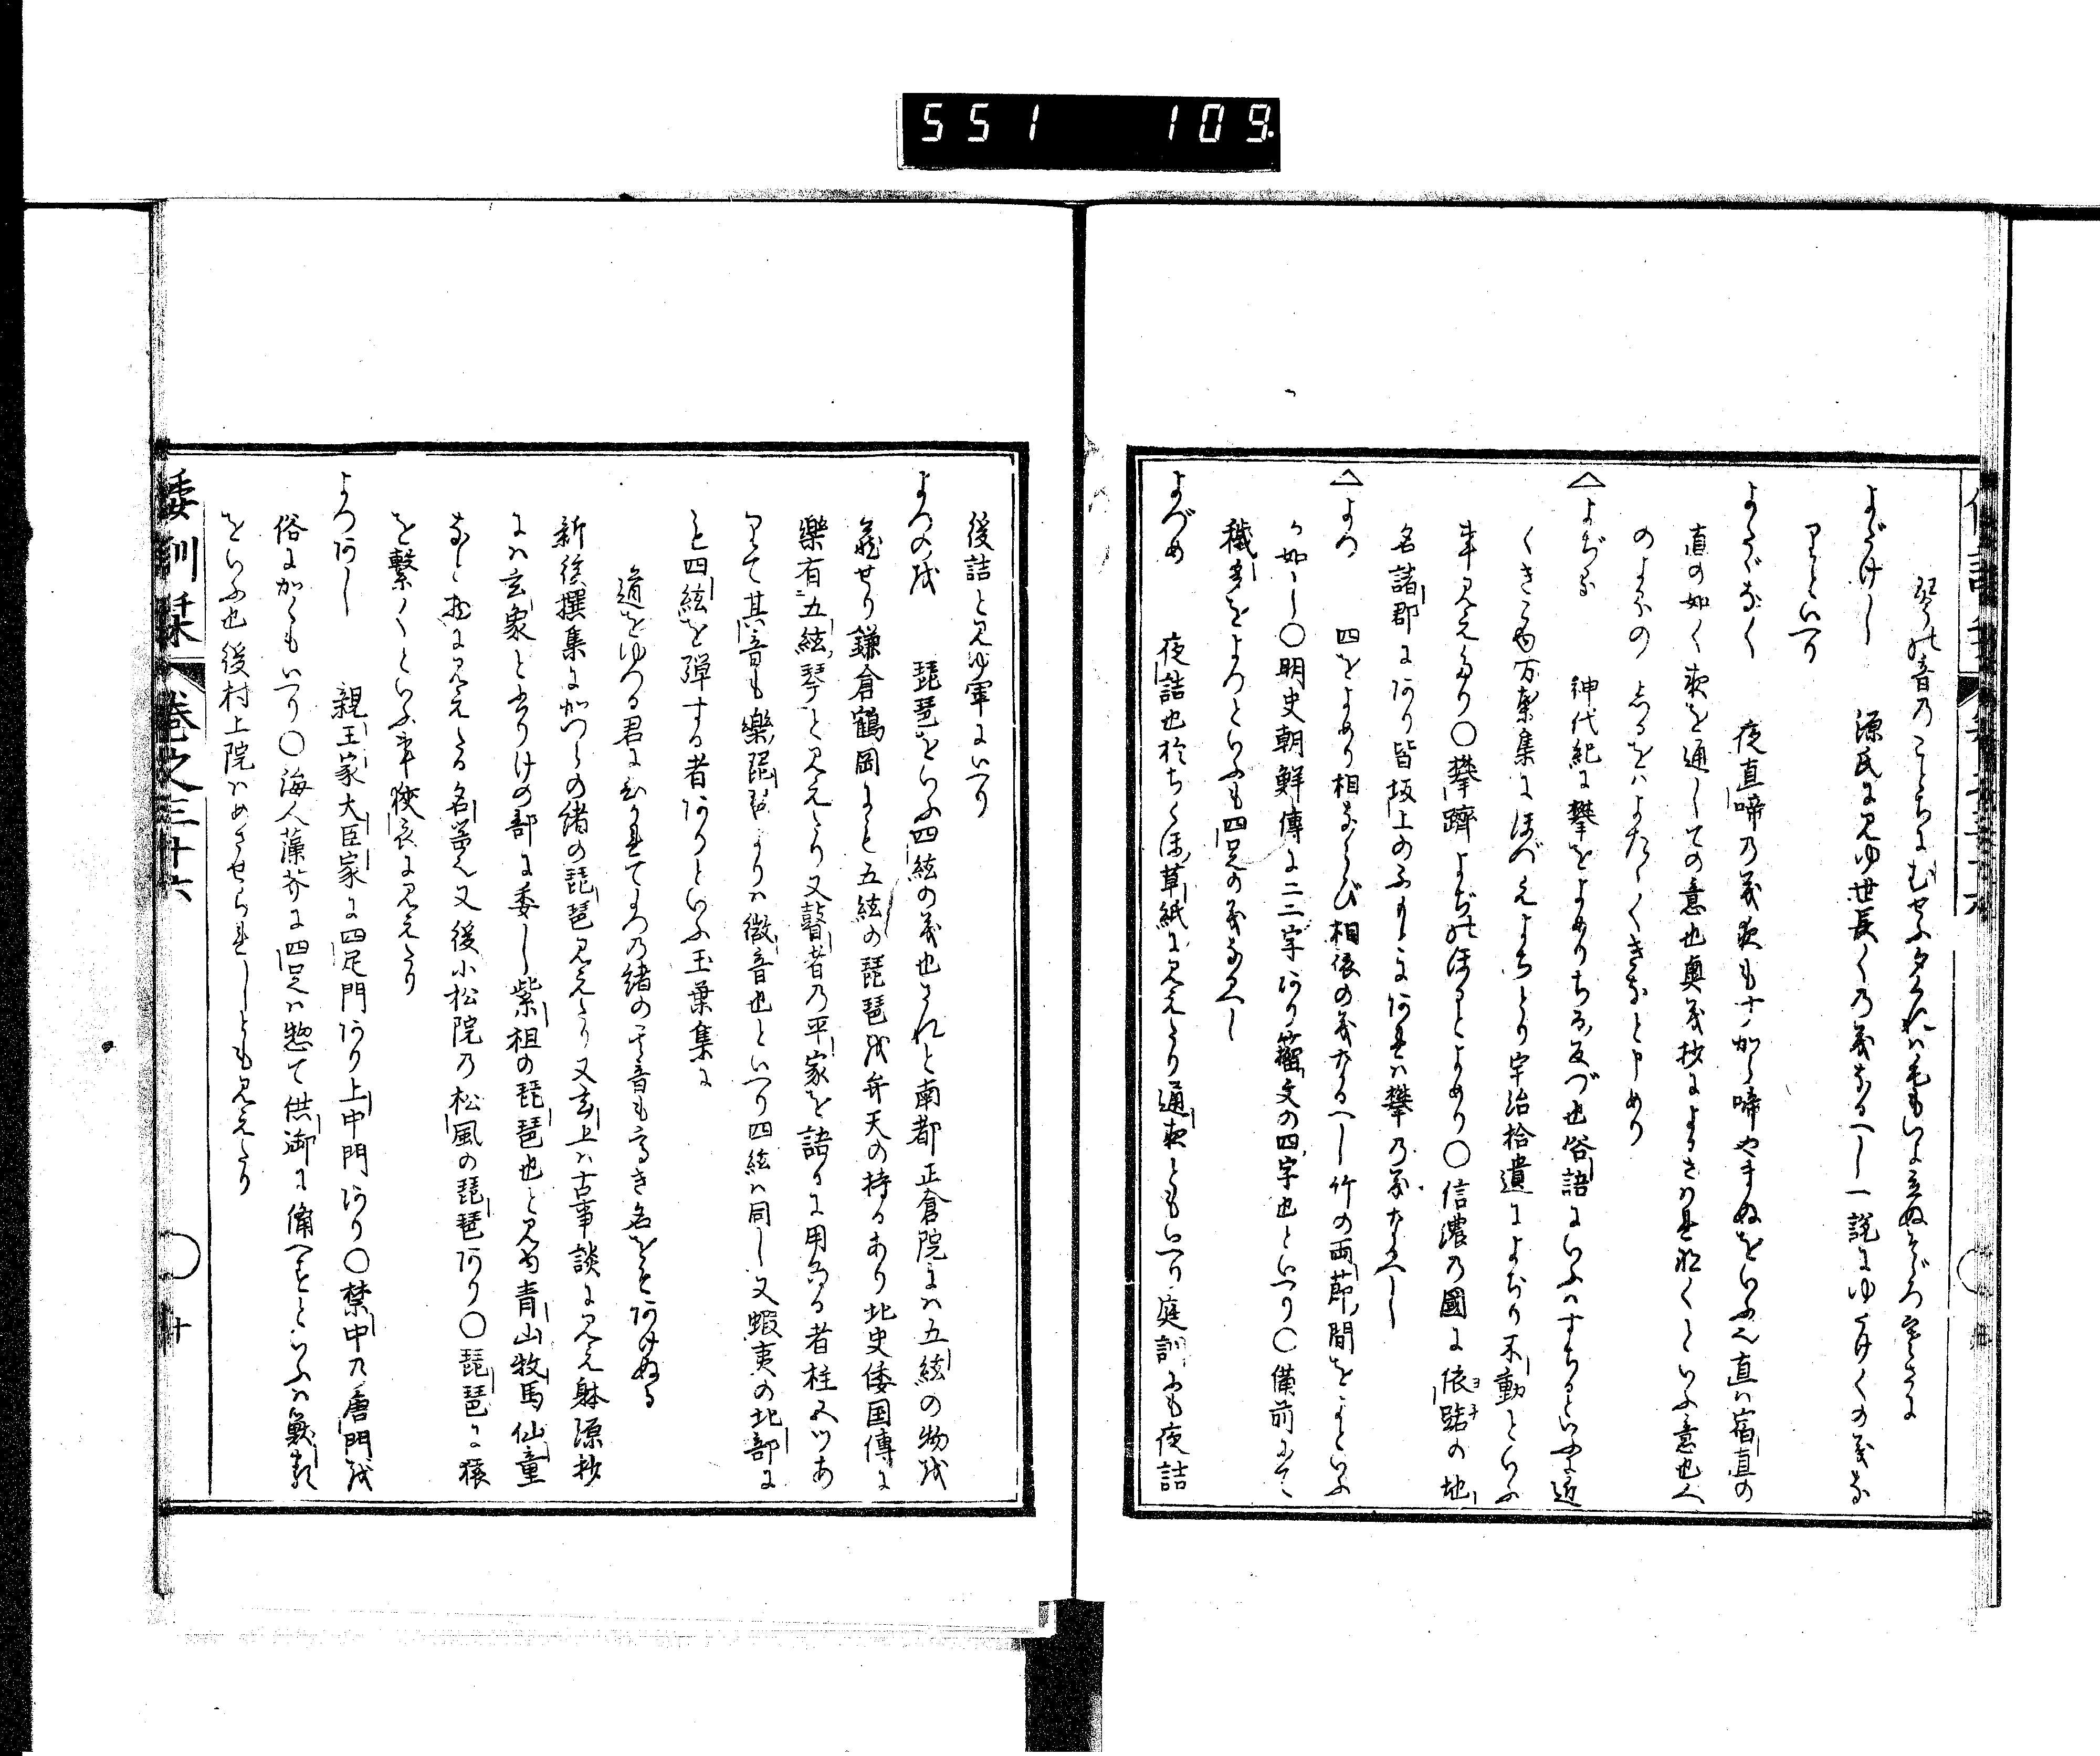 551 109
琴の音のことちにむせふ夕くれは毛もいよ立ぬそゝろさむさに
よだけし 源氏に見ゆ世長くの義なるへし一説にゆたけくの義な
りといへり
よたゞなく 夜直啼の義夜もすから啼やまぬをいふ也直は宿直の
直の如く夜を通しての意也奥義抄によるきはみなくといふ意也人
のよふの
よぢる 神代紀に攀をよめりちる反づ也俗語にいふはすちるといふに近
くきこゆ万葉集にほづえよぢとり宇治拾遺によぢり不動といふ
事見えたり〇攀躋よぢのほるとよめり〇信濃の國に依踮の地
名諸郡にあり皆坂上のふもとにあれは攀の義なるへし
よつ 四をよめり相ならび相依の義なるへし竹の両節間をよといふ
か如し〇明史朝鮮傳に二二字あり籀文の四字也といへり〇備前にて
穢多をよつといふも四足の義なるへし
よづめ 夜詰也於ちくほ草紙に見えたり通夜ともいへり庭訓にも夜詰
後詰と見ゆ軍にいへり
よつの緒 琵琶をいふ四絃の義也されと南都正倉院には五絃の物を
蔵せり鎌倉鶴岡にも五絃の琵琶を弁天の持るあり北史倭国傳に
樂有五絃琴と見えたり又瞽者の平家を語るに用ゐる者柱五つあ
りて其音も樂琵琶よりは微音也といへり四絃は同し又蝦夷の北部に
も四絃を弾する者ありといふ玉葉集に
道をゆつる君にひかれてよつの緒のその音も高き名をそあけぬる
新後撰集にかつらの緒の琵琶見えたり又玄上は古事談に見え躰源抄
には玄象と書りけの部に委し紫桓の琵琶也と見ゆ青山牧馬仙童
なと物に見えたる名器也又後小松院の松風の琵琶あり〇琵琶に猿
を繋くといふ事狭衣に見えたり
よつあし 親王家大臣家に四足門あり上中門あり〇禁中の唐門を
俗にかくもいへり〇海人藻芥に四足は惣て供御に備へすといふは獣類
をいふ也後村上院はめさせられしとも見えたり
倭訓栞 巻之三十六 十